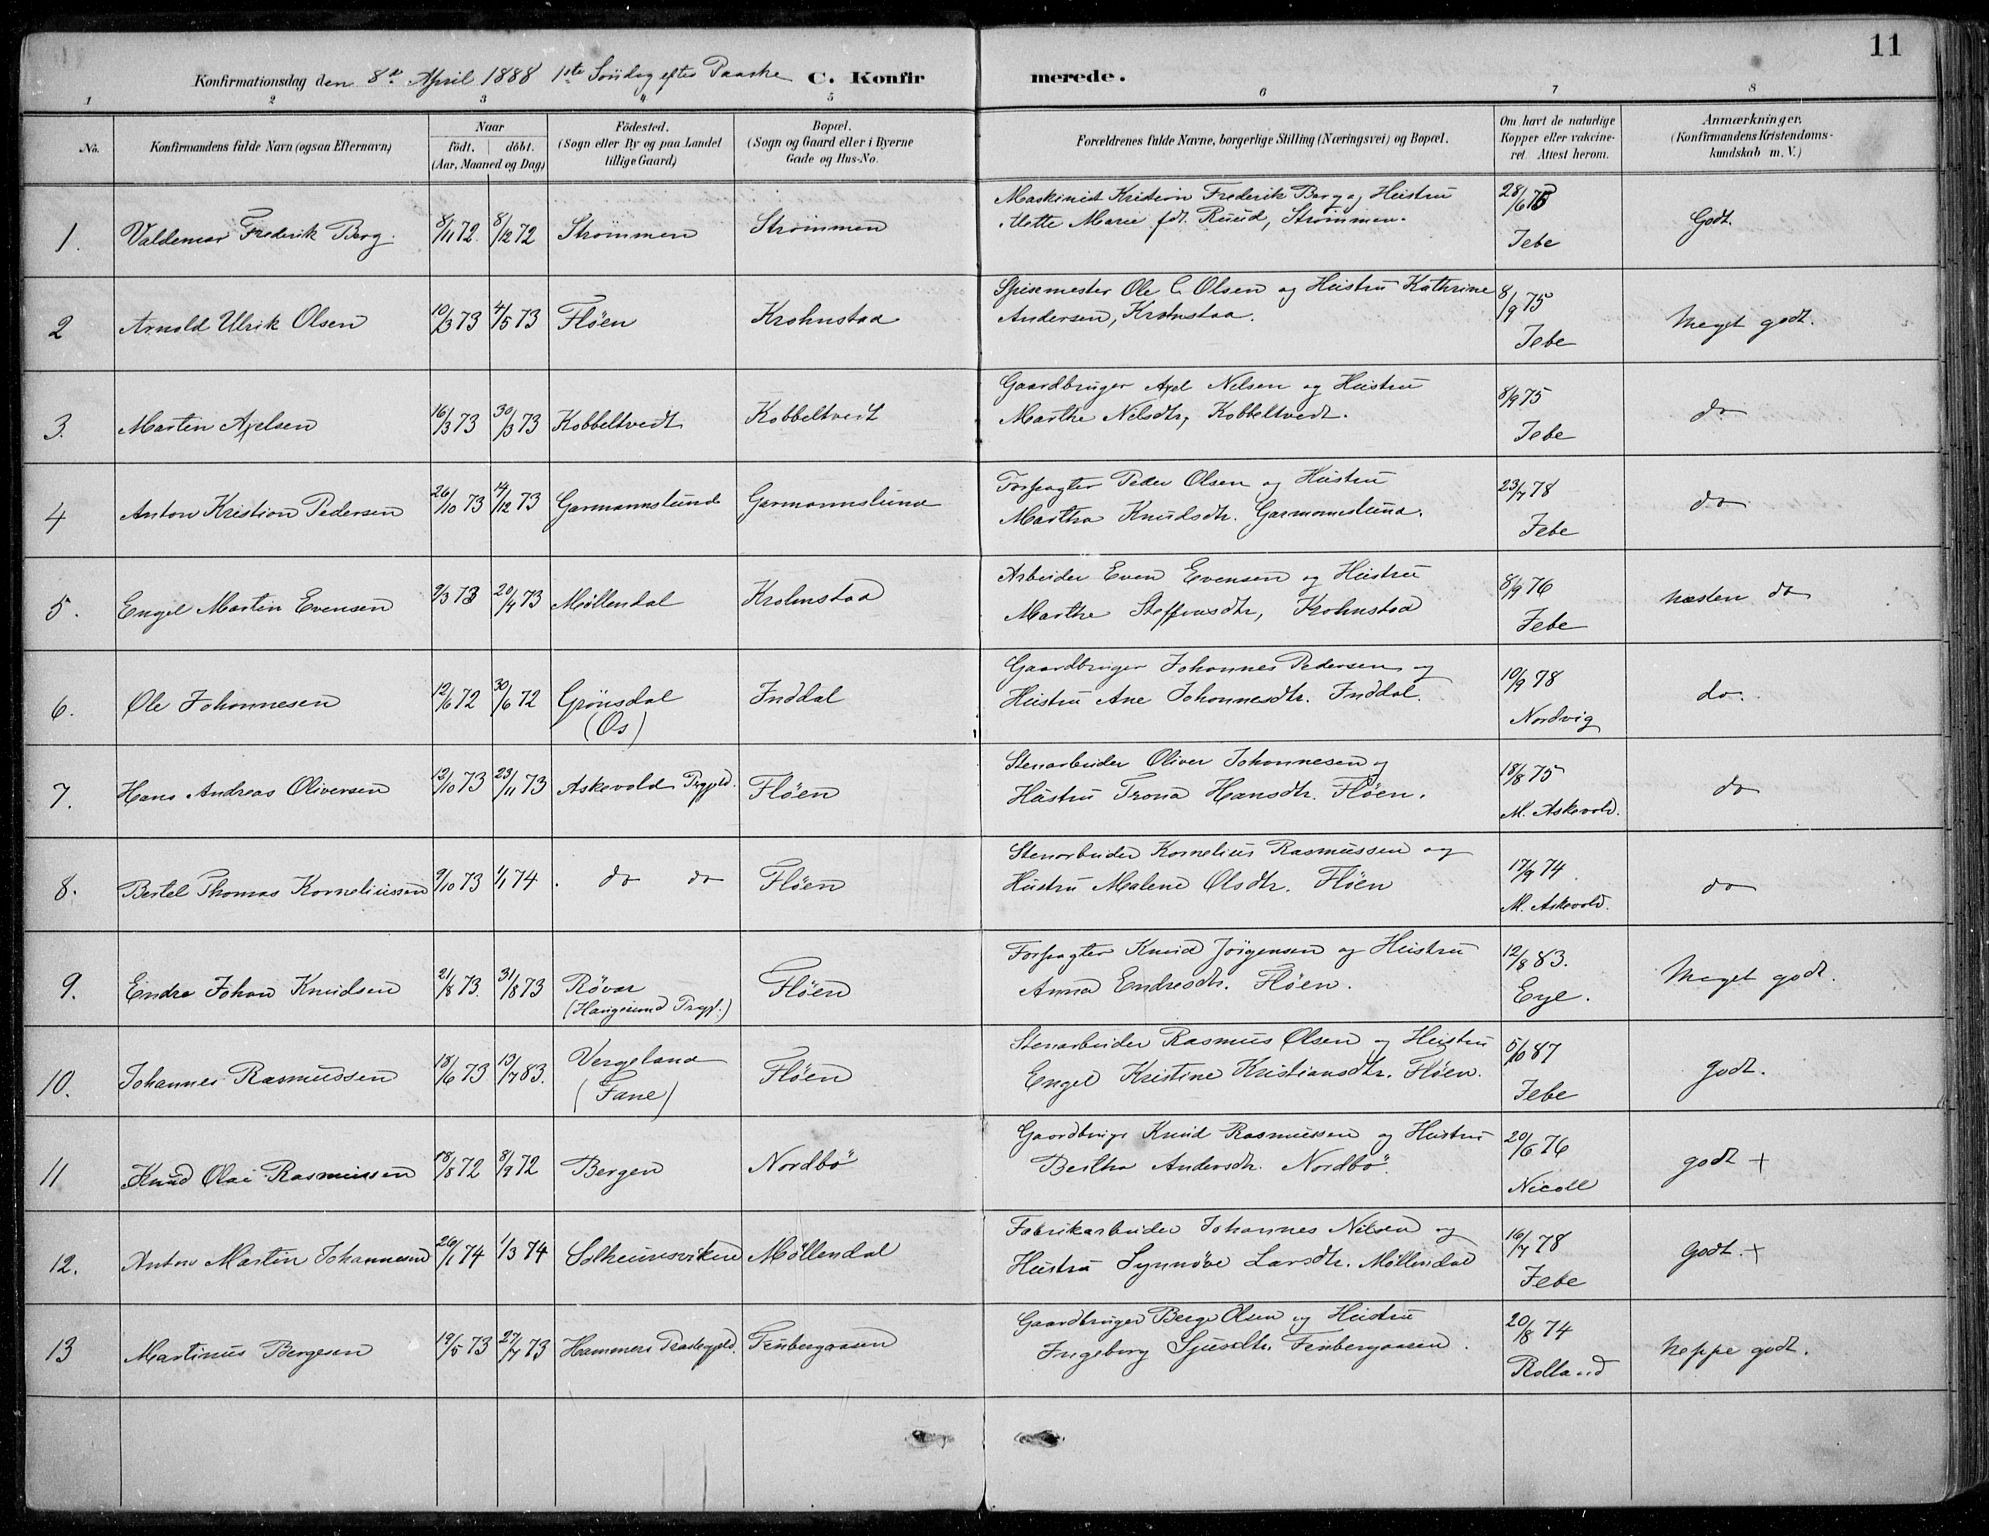 11
Konfirmationsdag den 8de April 1888 1ste Søndag efter Paaske C. Konfirmerede.
1 2 3 4 5 6 7 8
No. Konfirmandens fulde Navn (ogsaa Efternavn) Naar födt. döbt. (Aar, Maaned og Dag) Födested. (Sogn eller By og paa Landet tillige Gaard) Bopæl. (Sogn og Gaard eller i Byerne Gade og Hus-No. Forældrenes fulde Navne, borgerlige Stilling (Næringsvei) og Bopæl. Om havt de naturlige Kopper eller vakcineret. Attest herom. Anmærkninger. (Konfirmandens Kristendomskundskab m. V.)
1. Valdemar Frederik Berg. 8/11 72. 8/12 72 Strömmen Strömmen Maskinist Kristian Frederik Berg og Hustru Mette Marie fdt. Ruud, Strömmen. 28/6 Jebe Godt.
2 Arnold Ulrik Olsen 10/3 73 4/5 73 Flöen Krohnstad Spisemester Ole C. Olsen og Hustru Kathrine Andersen, Krohnstad. 8/9 75 Jebe Meget godt.
3. Martin Axelsen 16/3 73 30/3 73 Kobbeltvedt Kobbeltvedt Gaardbruger Axel Nelsen og Hustru Marthe Nelsdtr, Kobbeltvedt. 8/9 75 Jebe do
4 Anton Kristian Pedersen 26/10 73 14/12 73 Garmannslund Garmannslund Forpagter Peder Olsen og Hustru Martha Knudsdtr. Garmannslund. 23/7 78 Jebe do
5. Engel Martin Evensen 9/3 73 20/4 73 Møllendal Krohnstad Arbeider Even Evensen og Hustru Marthe Steffensdtr, Krohnstad 8/9 76 Jebe næsten do
6. Ole Johannesen 12/6 72 30/6 72 Grönsdal (Os) Inddal Gaardbruger Johannes Pedersen og Hustru Ane Johannesdtr. Inddal. 10/9 78 Nordvig do.
7. Hans Andreas Oliversen 12/10 73 23/11 73 Askevold Prgjld. Flöen Stenarbeider Oliver Johannesen og Hustru Trona Hansdtr. Flöen. 18/8 75 M. Askevold. do
8. Bertel Thomas Korneliussen 9/10 73 1/1 74 do do Flöen Stenarbeider Kornelius Rasmussen og Hustru Malene Olsdtr. Flöen 17/9 74 M. Askevold. do
9. Endre Johan Knudsen 21/8 73. 31/8 73 Rövar (Haugesund Prgj.) Flöen Forpagter Knud Jörgensen og Hustru Anna Endresdtr. Flöen. 12/8 83. Eye. Meget godt.
10. Johannes Rasmussen 18/6 73 13/7 83. Vergeland (Fane) Flöen Stenarbeider Rasmus Olsen og Hustru Engel Kristine Kristiansdtr. Flöen. 5/10 87 Jebe godt.
11 Knud Olai Rasmussen 18/8 72 8/9 72 Bergen Nordbö Gaardbrugr Knud Rasmussen og Hustru Bertha Andersdtr. Nordbö. 20/6 76 Nicoll godt +
12. Anton Martin Johannesen 26/1 74 1/3 74 Solheimsviken Møllendal Fabrikarbeider Johannes Nelsen og Hustru Synnöve Larsdtr. Møllendal 16/7 78 Jebe Godt. +
13 Martinus Bergesen 19/5 73 27/7 73 Hammers Præstegjld. Finbergaasen Gaardbruger Berge Olsen og Hustru Ingeborg Sjursdtr. Finbergaasen. 20/8 74 Rolland neppe godt.